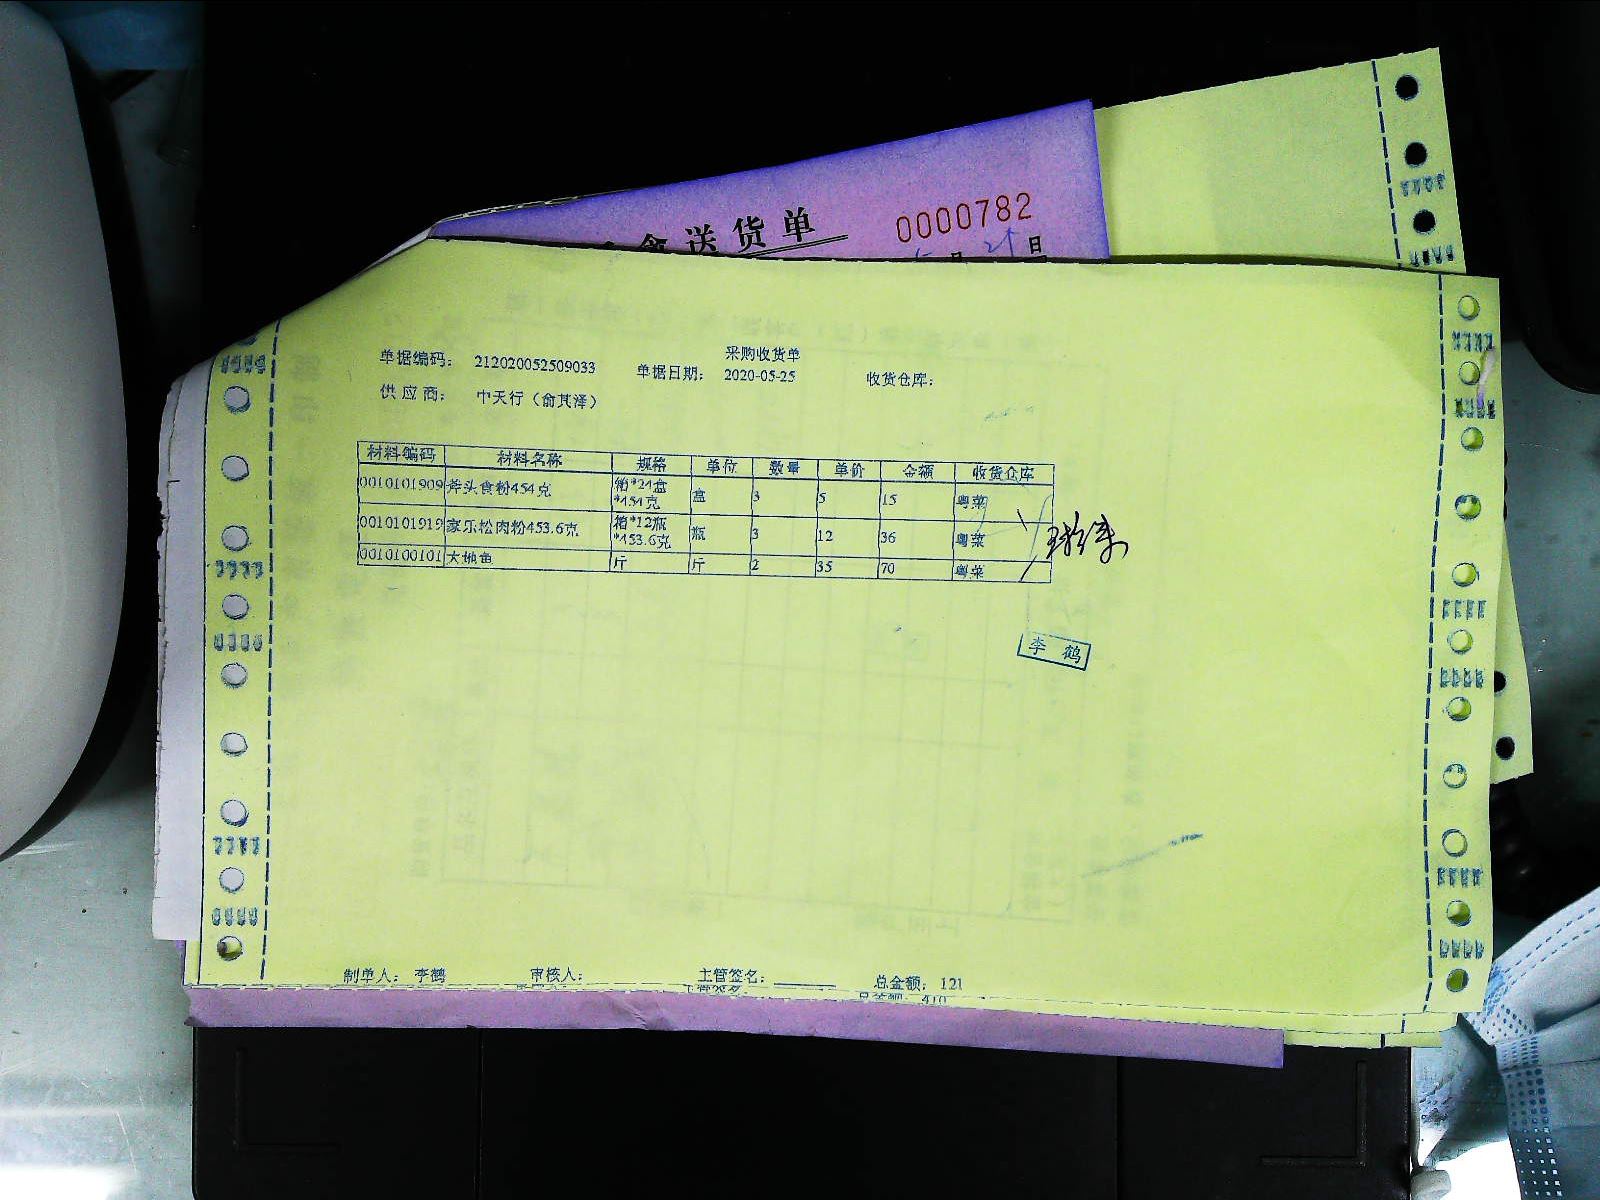 食送货单 0000782
日
采购收货单
单据编码： 212020052509033 单据日期： 2020-05-25 收货仓库：
供 应 商： 中天行（俞其泽）
材料编码 材料名称 规格 单位 数量 单价 金额 收货仓库
0010101909 斧头食粉454克 箱*24盒*454克 盒 3 5 15 粤菜
0010101919 家乐松肉粉453.6克 箱*12瓶*453.6克 瓶 3 12 36 粤菜
0010100101 大地鱼 斤 斤 2 35 70 粤菜
李 鹤
制单人： 李鹤 审核人： 主管签名： 总金额： 121
主管签名： 总金额： 410